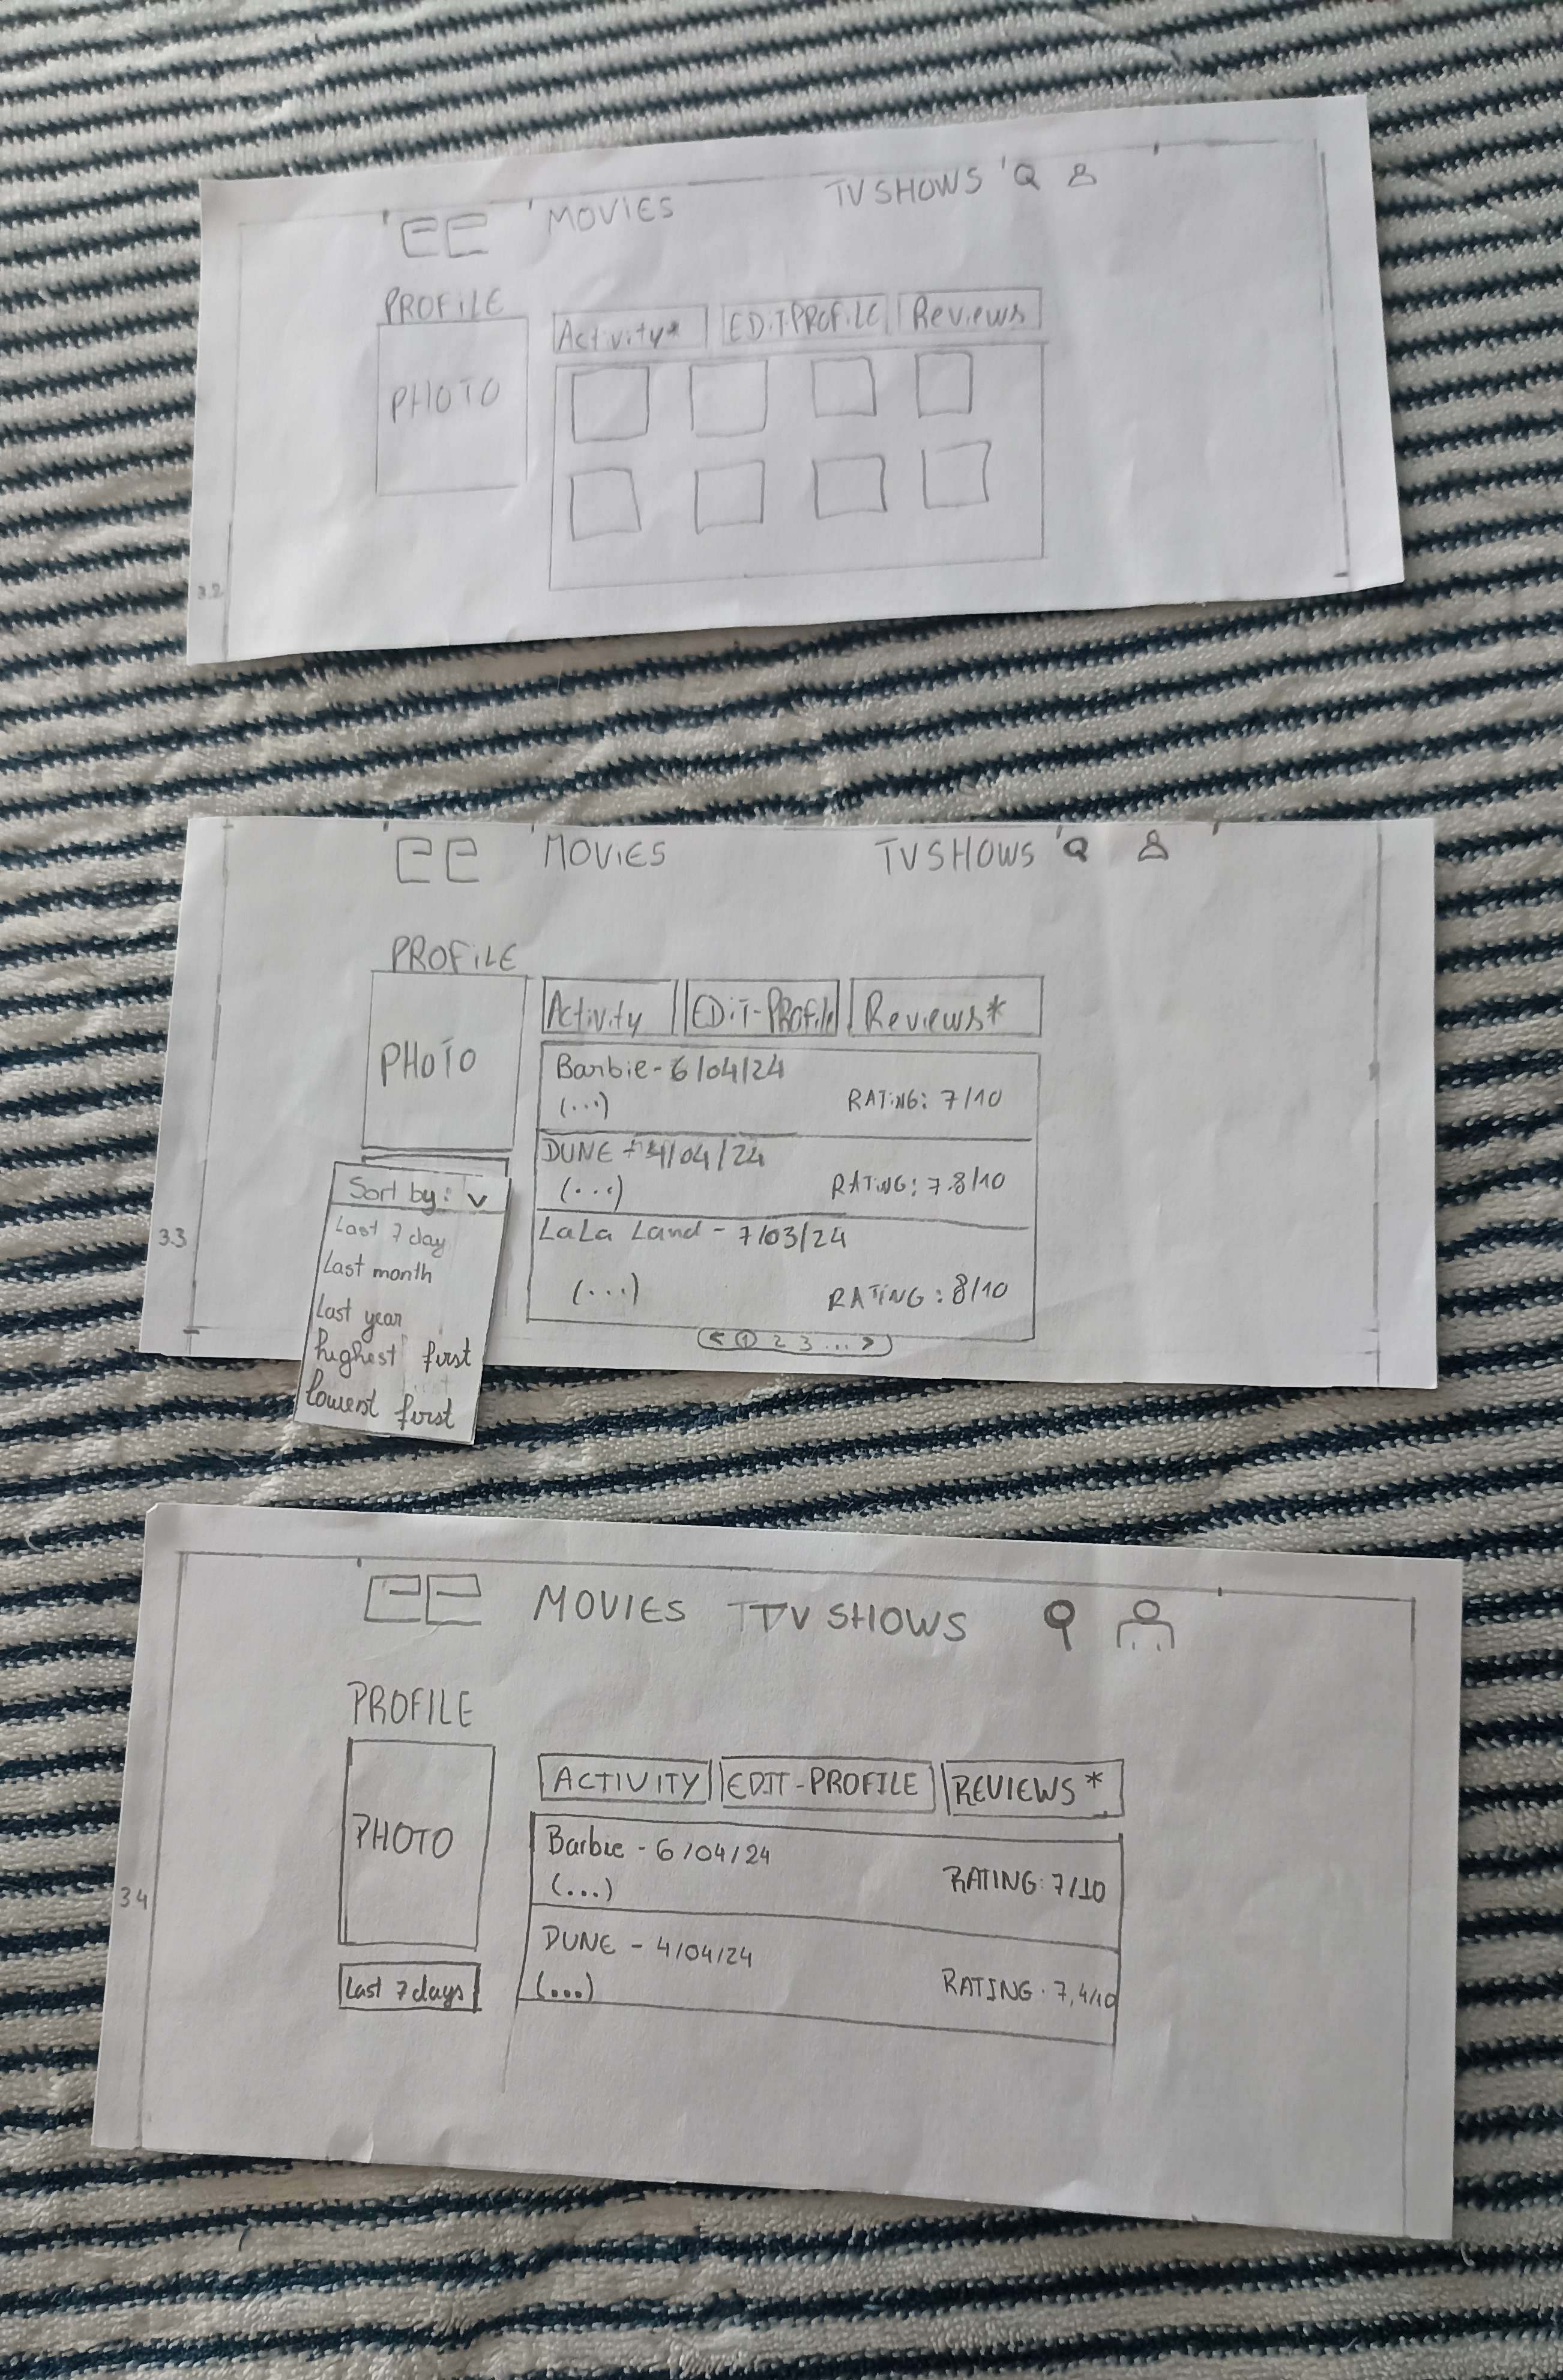 EE MOVIES TV SHOWS
PROFILE
PHOTO
Activity* EDIT-PROFILE Reviews
3.2
EE MOVIES TV SHOWS
PROFILE
PHOTO
Activity EDIT-PROFILE Reviews*
Barbie - 6/04/24
(...) RATING: 7/10
DUNE - 4/04/24
(...) RATING: 7.8/10
LaLa Land - 7/03/24
(...) RATING: 8/10
< 1 2 3 ... >
Sort by:
Last 7 day
Last month
Last year
highest first
lowest first
3.3
EE MOVIES TTV SHOWS
PROFILE
PHOTO
Last 7 days
ACTIVITY EDIT-PROFILE REVIEWS*
Barbie - 6/04/24
(...) RATING: 7/10
DUNE - 4/04/24
(...) RATING: 7,4/10
3.4